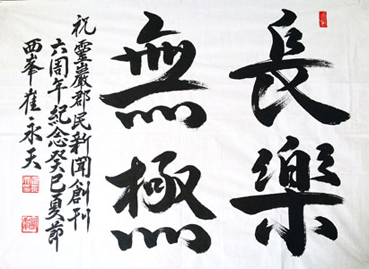 長樂
無極
祝靈巖郡民新聞創刊
六周年紀念癸巳夏節
西峯崔永天